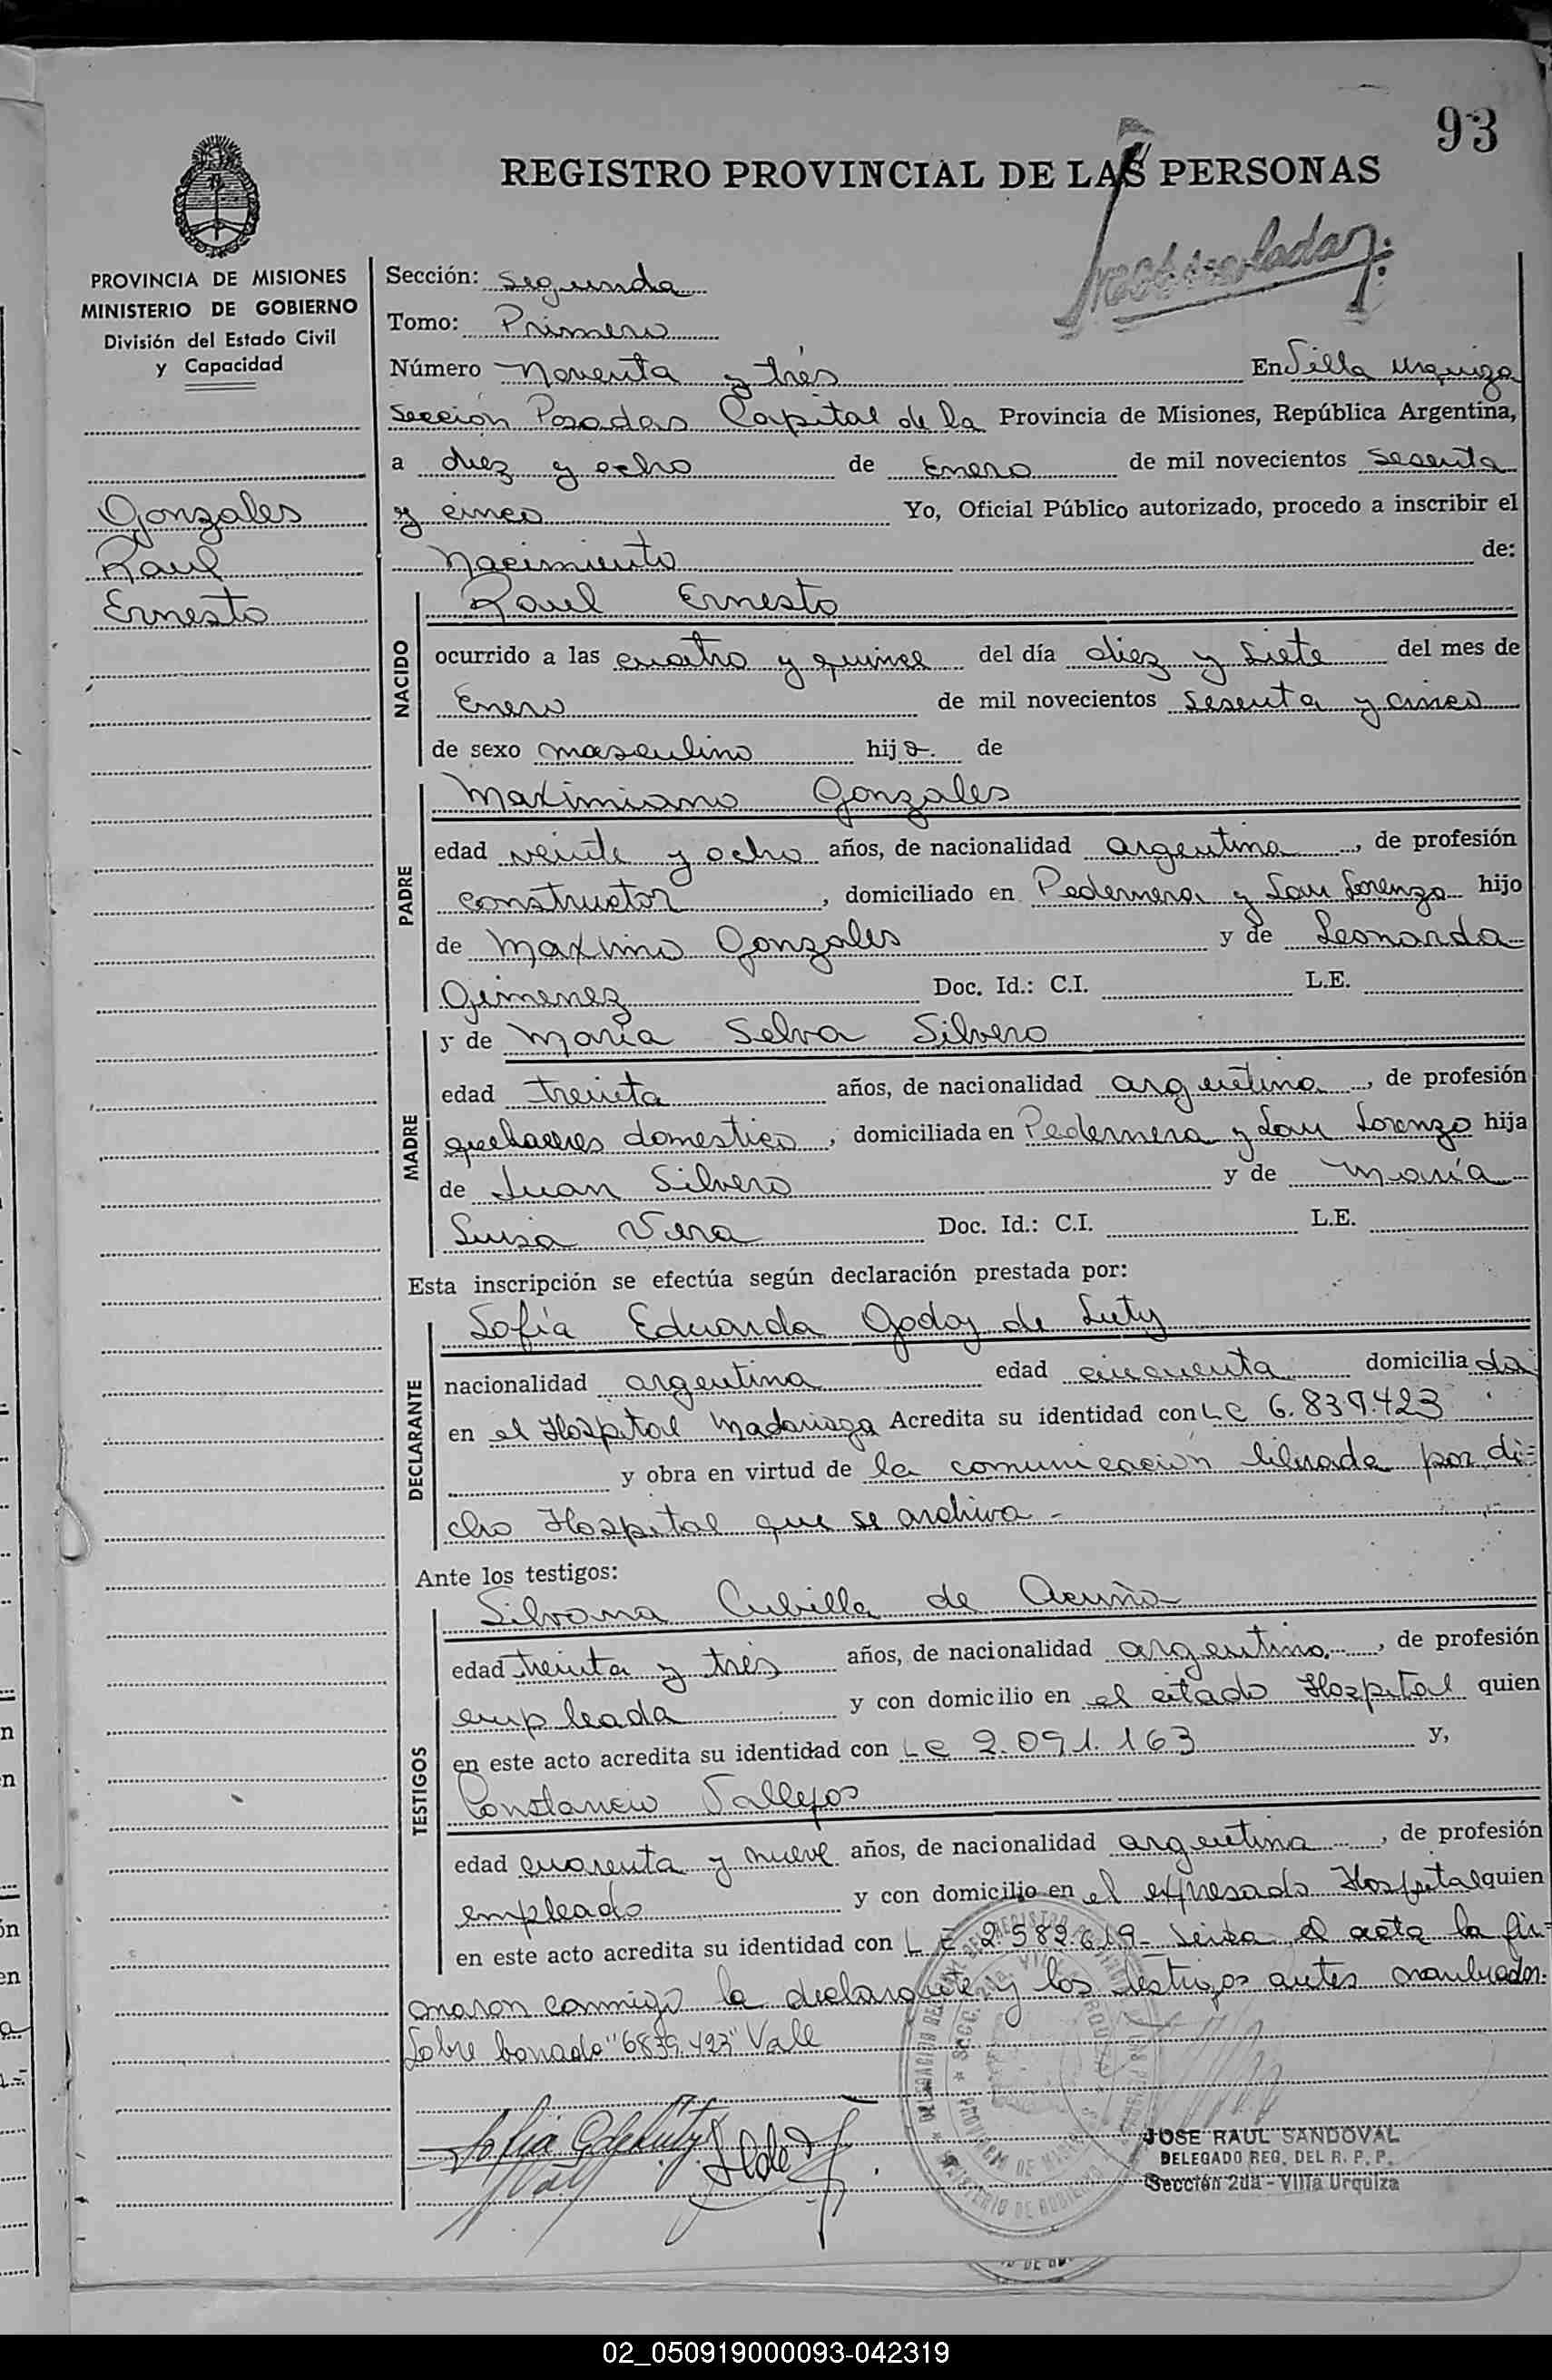 93
REGISTRO PROVINCIAL DE LAS PERSONAS
PROVINCIA DE MISIONES
MINISTERIO DE GOBIERNO
División del Estado Civil
y Capacidad
Gonzales
Raul
Ernesto
Sección: Segunda
Tomo: Primero
Número Noventa y trés En Villa Urquiza
Sección Posadas Capital de la Provincia de Misiones, República Argentina,
a diez y ocho de Enero de mil novecientos sesenta
y cinco Yo, Oficial Público autorizado, procedo a inscribir el
Nacimiento de:
NACIDO
Raul Ernesto
ocurrido a las cuatro y quince del día diez y siete del mes de
Enero de mil novecientos sesenta y cinco
de sexo masculino hijo de
PADRE
Maximiano Gonzales
edad veinte y ocho años, de nacionalidad argentina, de profesión
constructor, domiciliado en Pedernera y San Lorenzo hijo
de Maximo Gonzales y de Leonarda
Gimenez Doc. Id.: C.I. L.E.
MADRE
y de María Selva Silvero
edad treinta años, de nacionalidad argentina, de profesión
quehaceres domestico, domiciliada en Pedernera y San Lorenzo hija
de Juan Silvero y de María
Luisa Vera Doc. Id.: C.I. L.E.
Esta inscripción se efectúa según declaración prestada por:
DECLARANTE
Sofía Eduarda Godoy de Luty
nacionalidad argentina edad cincuenta domiciliada
en el Hospital Madariaga Acredita su identidad con L C 6.839423
y obra en virtud de la comunicación librada por di=
cho Hospital que se archiva -
Ante los testigos:
TESTIGOS
Silvana Cubilla de Acuña
edad treinta y trés años, de nacionalidad argentina, de profesión
empleada y con domicilio en el citado Hospital quien
en este acto acredita su identidad con L C 2.091.163 y,
Constancio Vallejos
edad cuarenta y nueve años, de nacionalidad argentina, de profesión
empleado y con domicilio en el expresado Hospital quien
en este acto acredita su identidad con L E 2.582.619 - Leída el acta la fir=
maron conmigo la declarante y los testigos antes nombrados.
Sobre borrado "6839.423" Vale
JOSE RAUL SANDOVAL
DELEGADO REG. DEL R. P. P.
Sección 2da - Villa Urquiza
02_050919000093-042319